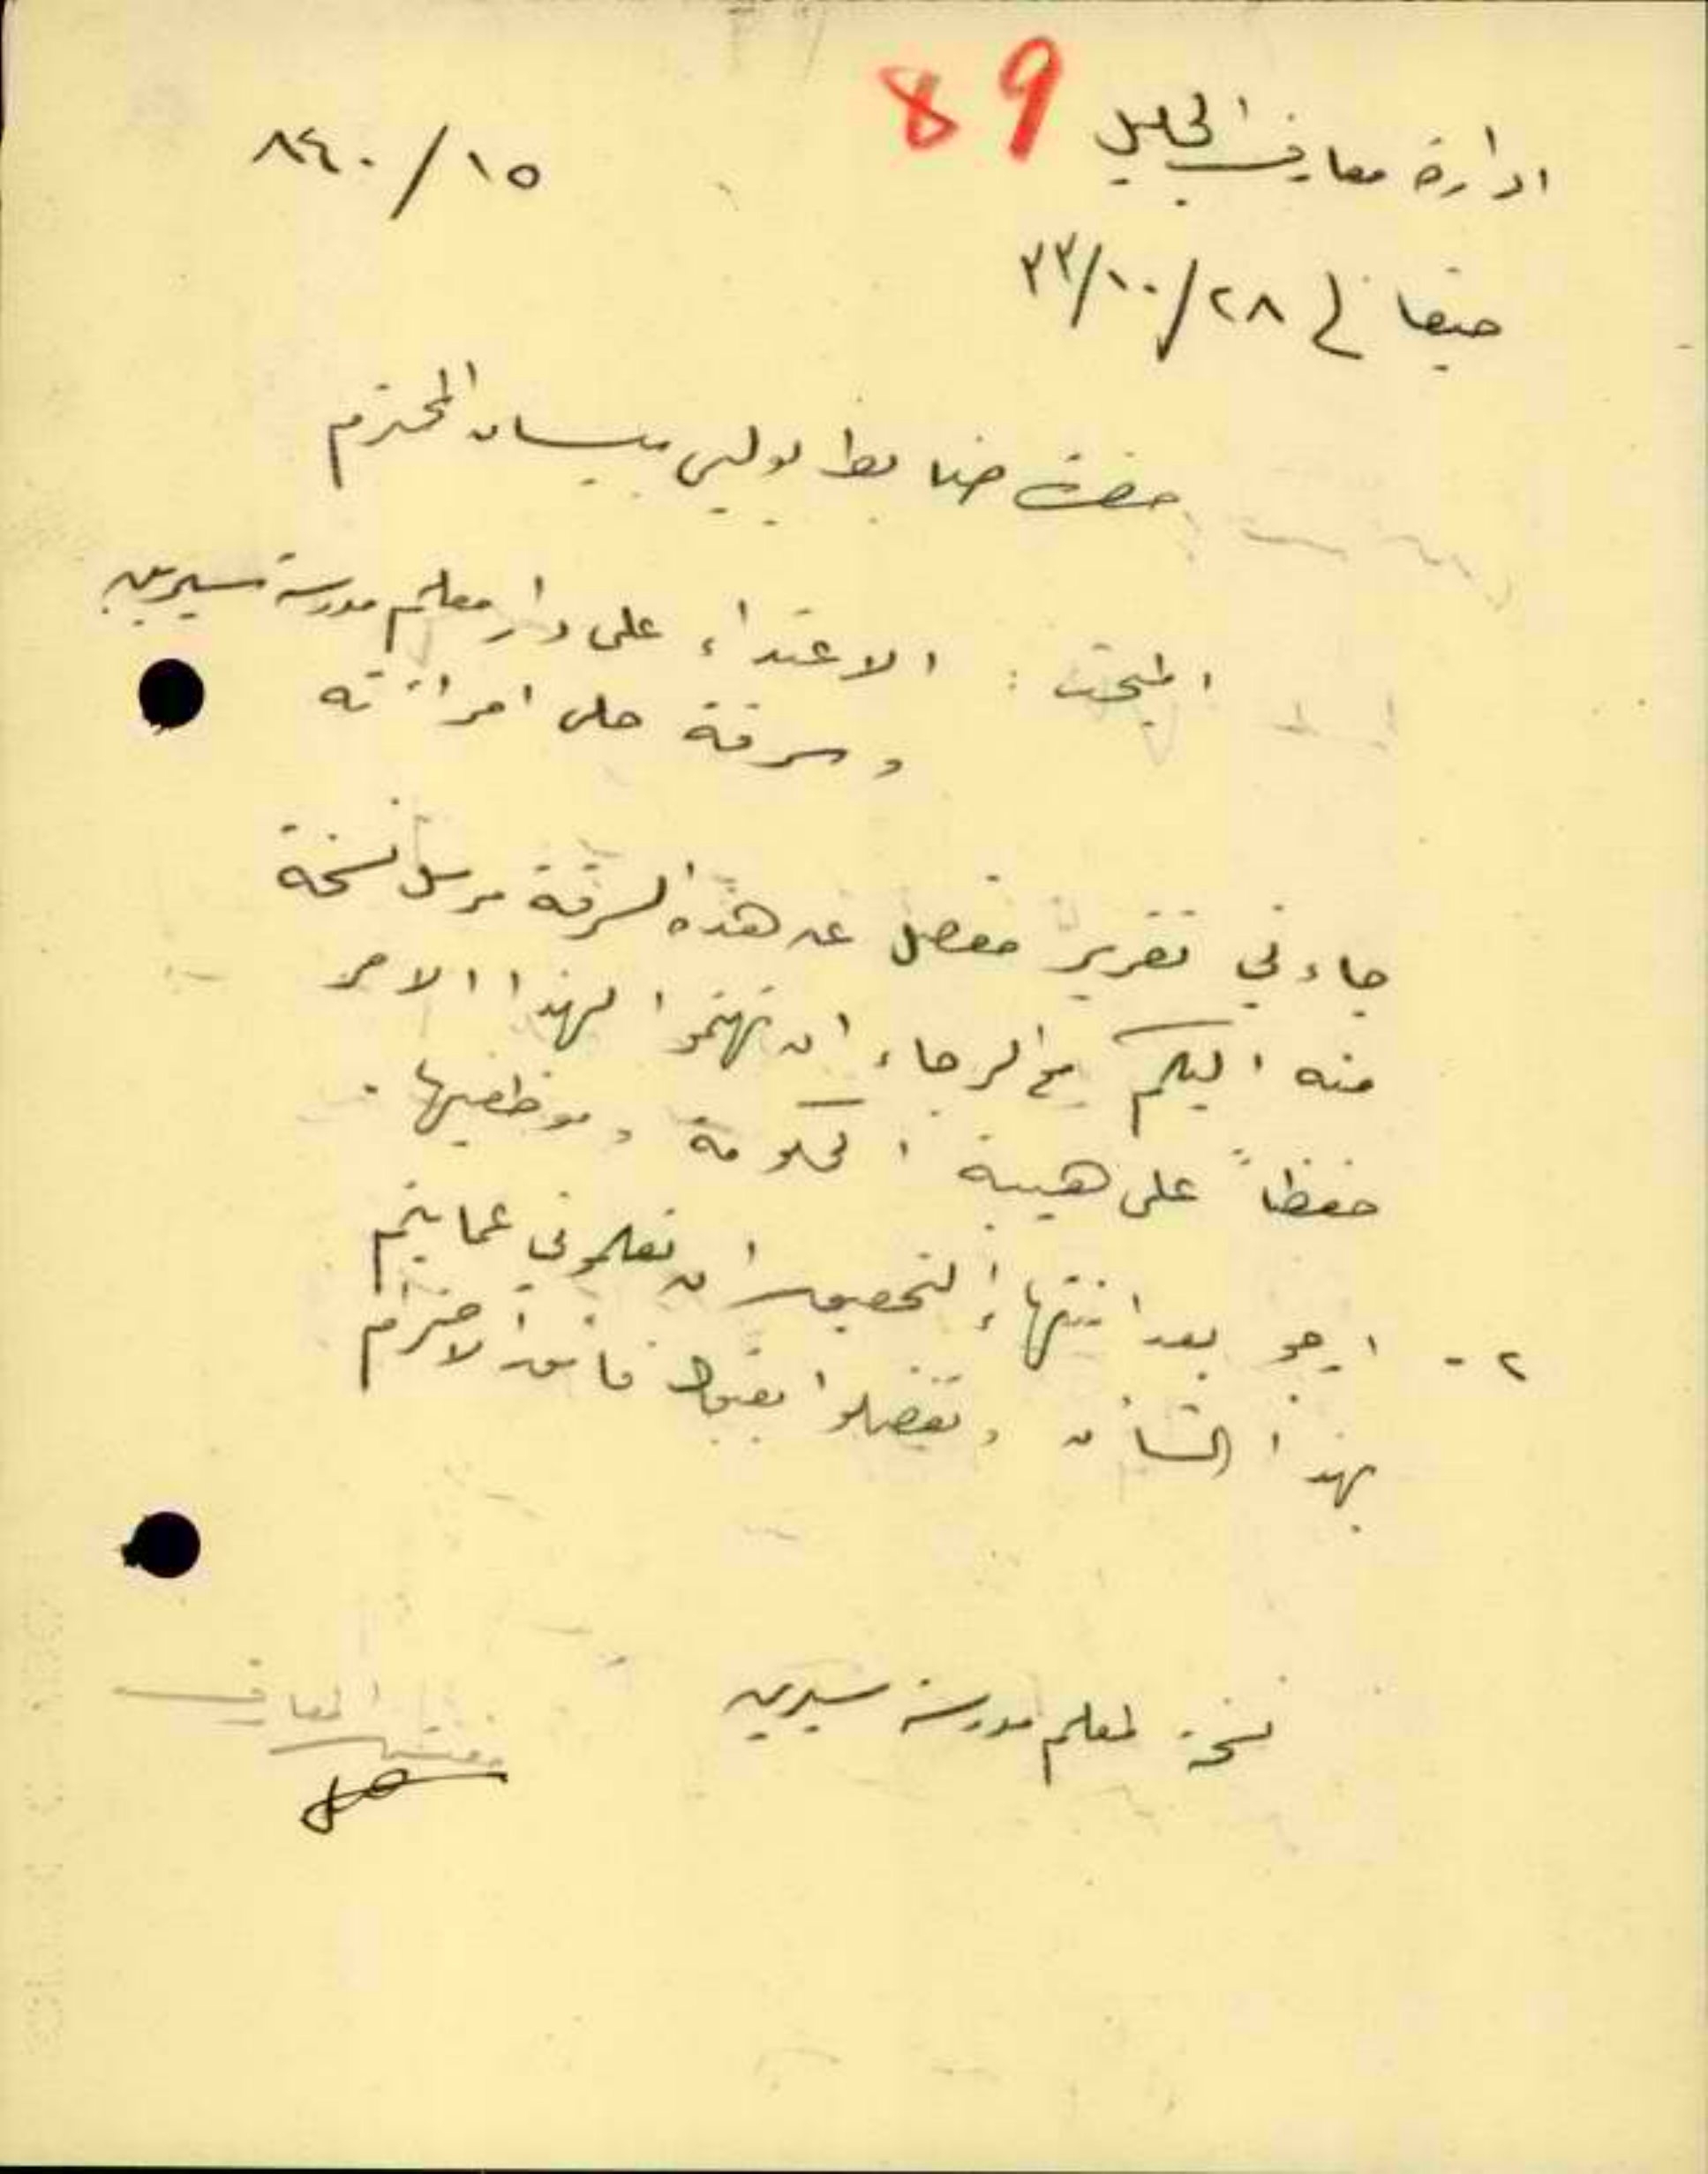 89
ادارة معارف الجليل
١٥/٨٤٠
حيفا في ٢٨/١٠/٣٣
حضرة ضابط بوليس بيسان المحترم
المبحث : الاعتداء على دار معلم مدرسة سيرين
وسرقة حلى امرأته
جاءني تقرير مفصل عن هذه السرقة مرسل نسخة
منه اليكم مع الرجاء ان تهتموا لهذا الامر
حفظاً على هيبة الحكومة وموظفيها .
٢ - ارجو بعد انتهاء التحقيق ان تعلموني عما يتم
بهذا الشأن وتفضلوا بقبول فائق الاحترام
نسخة لمعلم مدرسة سيرين
مفتش المعارف